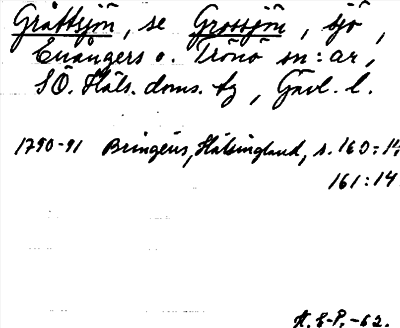 Gråttsjön, se Grossjön, sjö,
Enångers o. Trönö sn:ar,
SÖ. Häls. doms. tg, Gävl. l.
1790-91 Bringéus, Hälsingland, s. 160:14
161:14
H. E-P. -62.